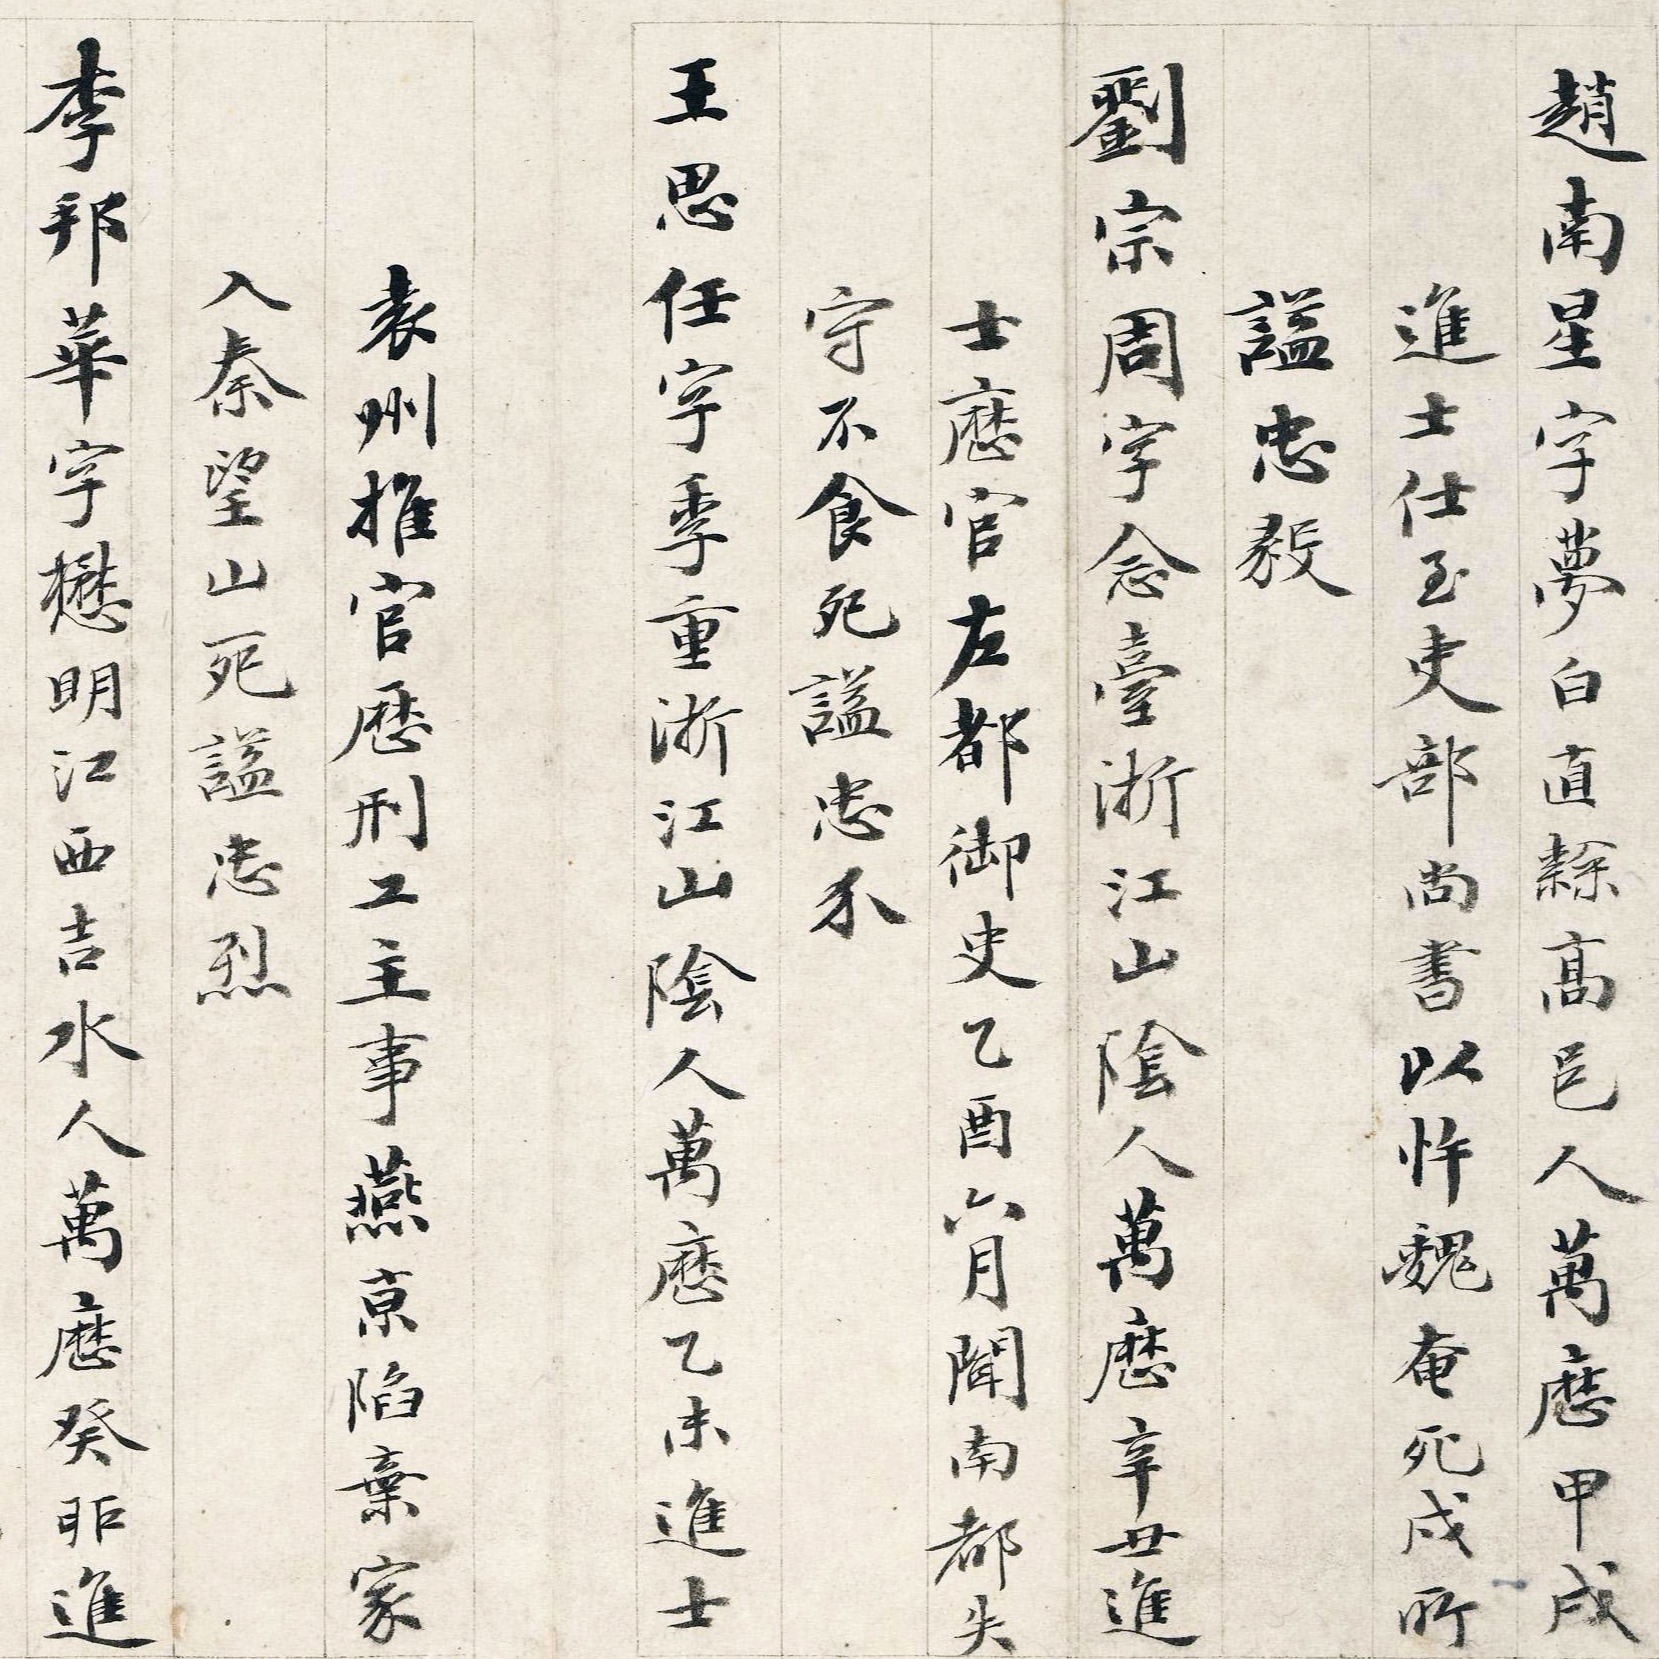 趙南星字夢白直隸高邑人萬曆甲戌
進士仕至吏部尚書以忤魏奄死戍所
謚忠毅
劉宗周字念臺浙江山陰人萬曆辛丑進
士歷官左都御史乙酉六月聞南都失
守不食死謚忠介
王思任字季重浙江山陰人萬曆乙未進士
袁州推官歷刑工主事燕京陷棄家
入秦望山死謚忠烈
李邦華字懋明江西吉水人萬曆癸卯進